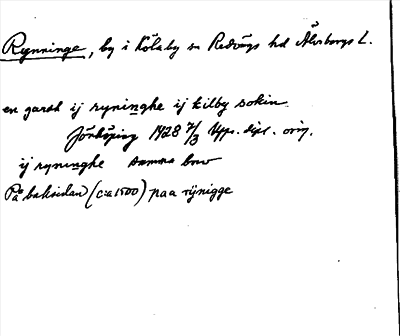 Rynninge, by i Kölaby sn Redvägs hd Älvsborgs L.
en gardh ij ryninghe ij kilby sokin
Jönköping 1428 7/3 Upps. dipl. orig.
ij ryninghe samma brev
På baksidan (c:a 1500) paa rÿnigge